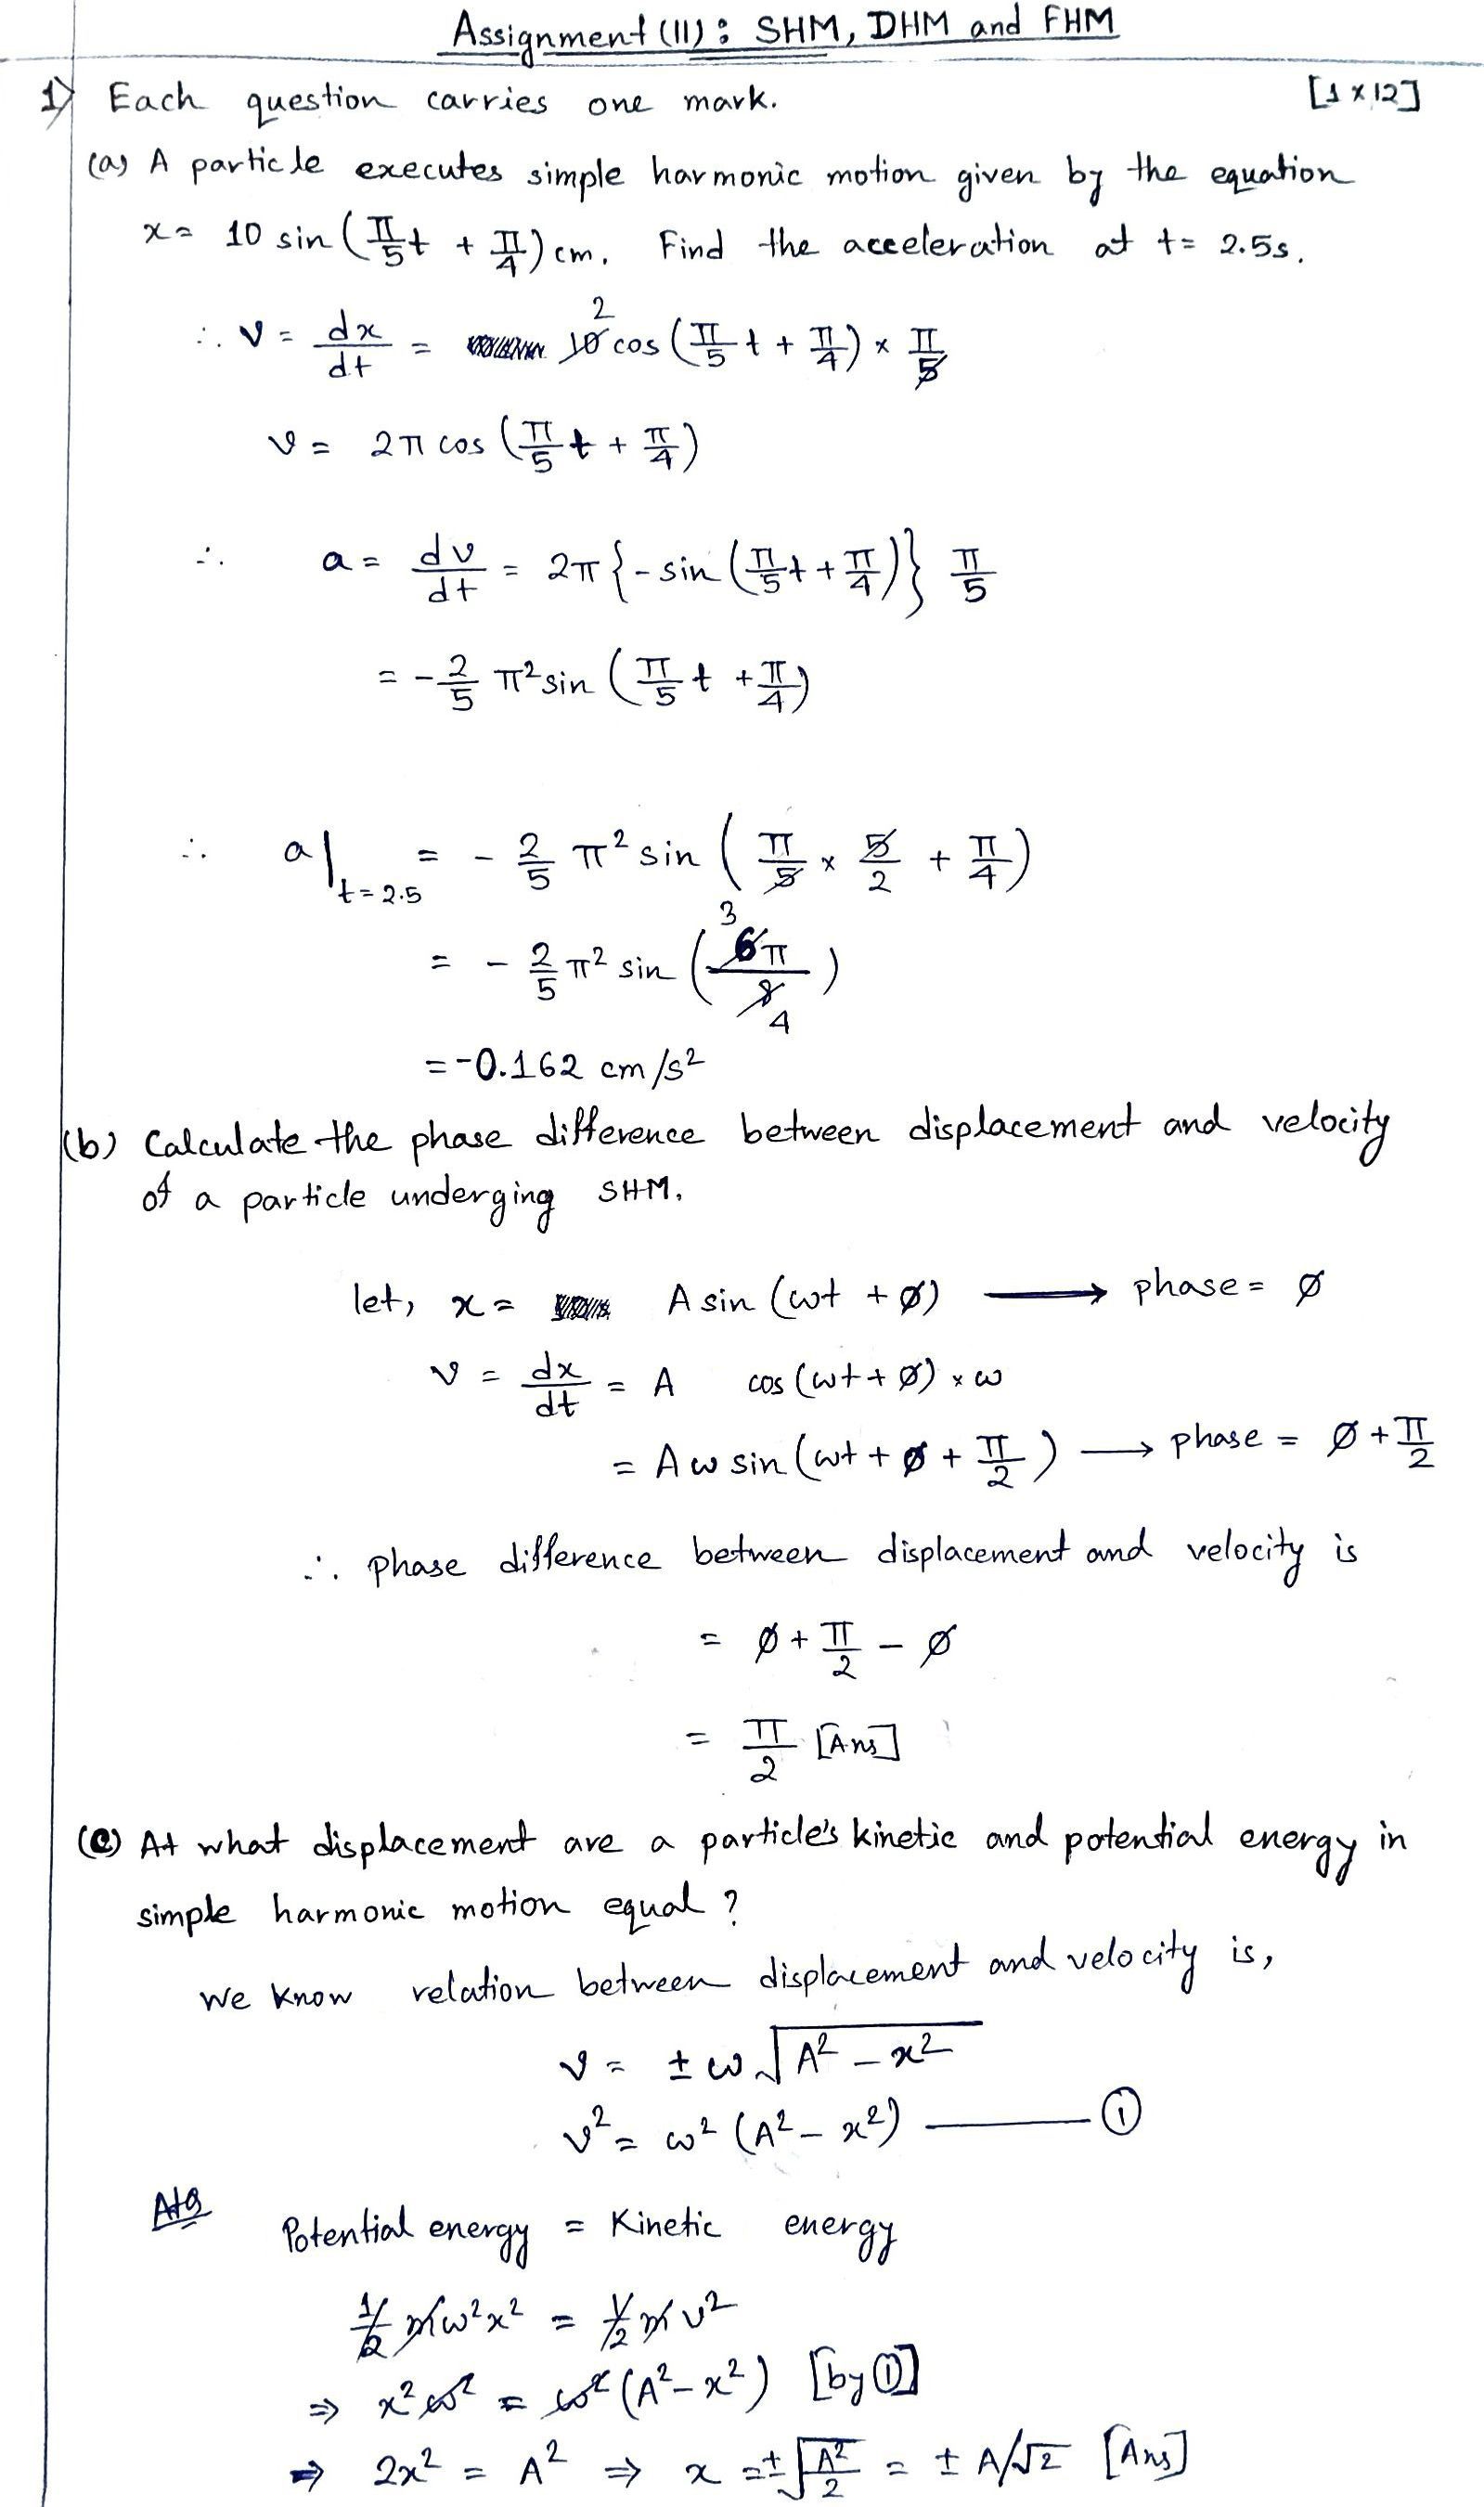 Assignment (11): SHM, DHM and FHM
1) Each question carries one mark. [1 × 12]
(a) A particle executes simple harmonic motion given by the equation
x = 10 sin (π/5 t + π/4) cm. Find the acceleration at t = 2.5s.
∴ v = dx/dt = 10 2 cos (π/5 t + π/4) × π/5
v = 2π cos (π/5 t + π/4)
∴ a = dv/dt = 2π {- sin (π/5 t + π/4)} π/5
= - 2/5 π² sin (π/5 t + π/4)
∴ a|t=2.5 = - 2/5 π² sin (π/5 × 5/2 + π/4)
= - 2/5 π² sin (6π/8 3 4)
= -0.162 cm/s²
(b) Calculate the phase difference between displacement and velocity
of a particle underging SHM.
let, x = A sin (ωt + ø) ⟶ phase = ø
v = dx/dt = A cos (ωt + ø) × ω
= A ω sin (ωt + ø + π/2) ⟶ phase = ø + π/2
∴ phase difference between displacement and velocity is
= ø + π/2 - ø
= π/2 [Ans]
(c) At what displacement are a particle's kinetic and potential energy in
simple harmonic motion equal ?
We know relation between displacement and velocity is,
v = ± ω √(A² - x²)
v² = ω² (A² - x²) —— ①
AtQ Potential energy = Kinetic energy
1/2 mω²x² = 1/2 m v²
⇒ x² ω² = ω² (A² - x²) [by ①]
⇒ 2x² = A² ⇒ x = ± √(A²/2) = ± A/√2 [Ans]